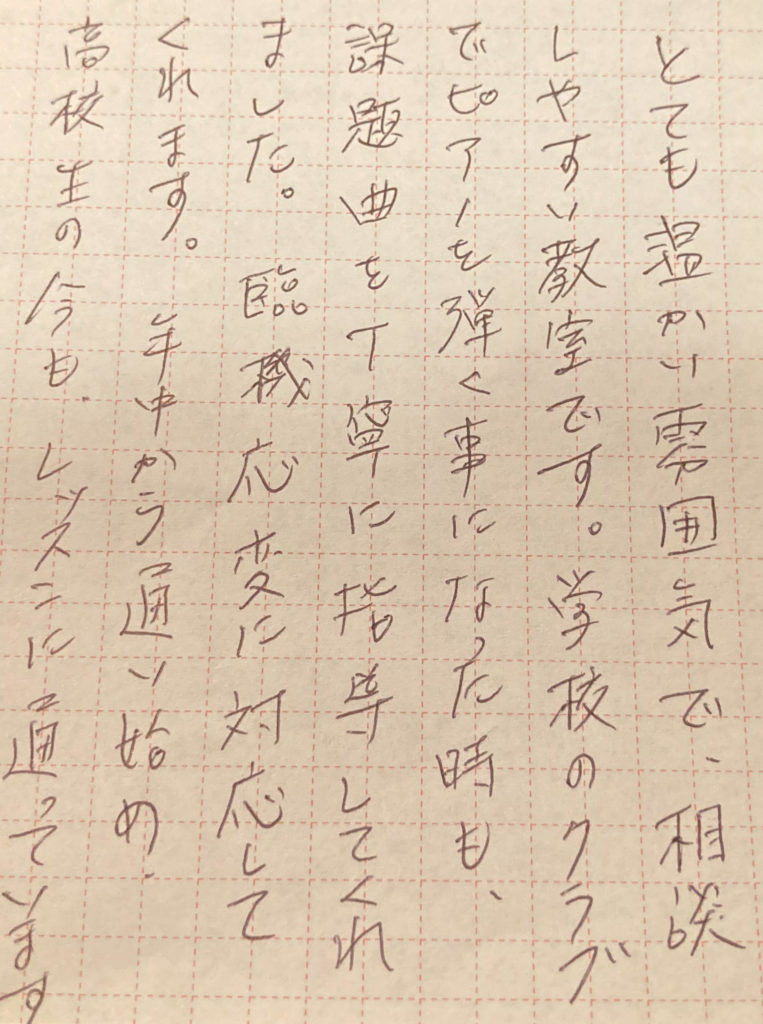 とても温かい雰囲気で、相談
しやすい教室です。学校のクラブ
でピアノを弾く事になった時も、
課題曲を丁寧に指導してくれ
ました。臨機応変に対応して
くれます。年中から通い始め、
高校生の今も、レッスンに通っています